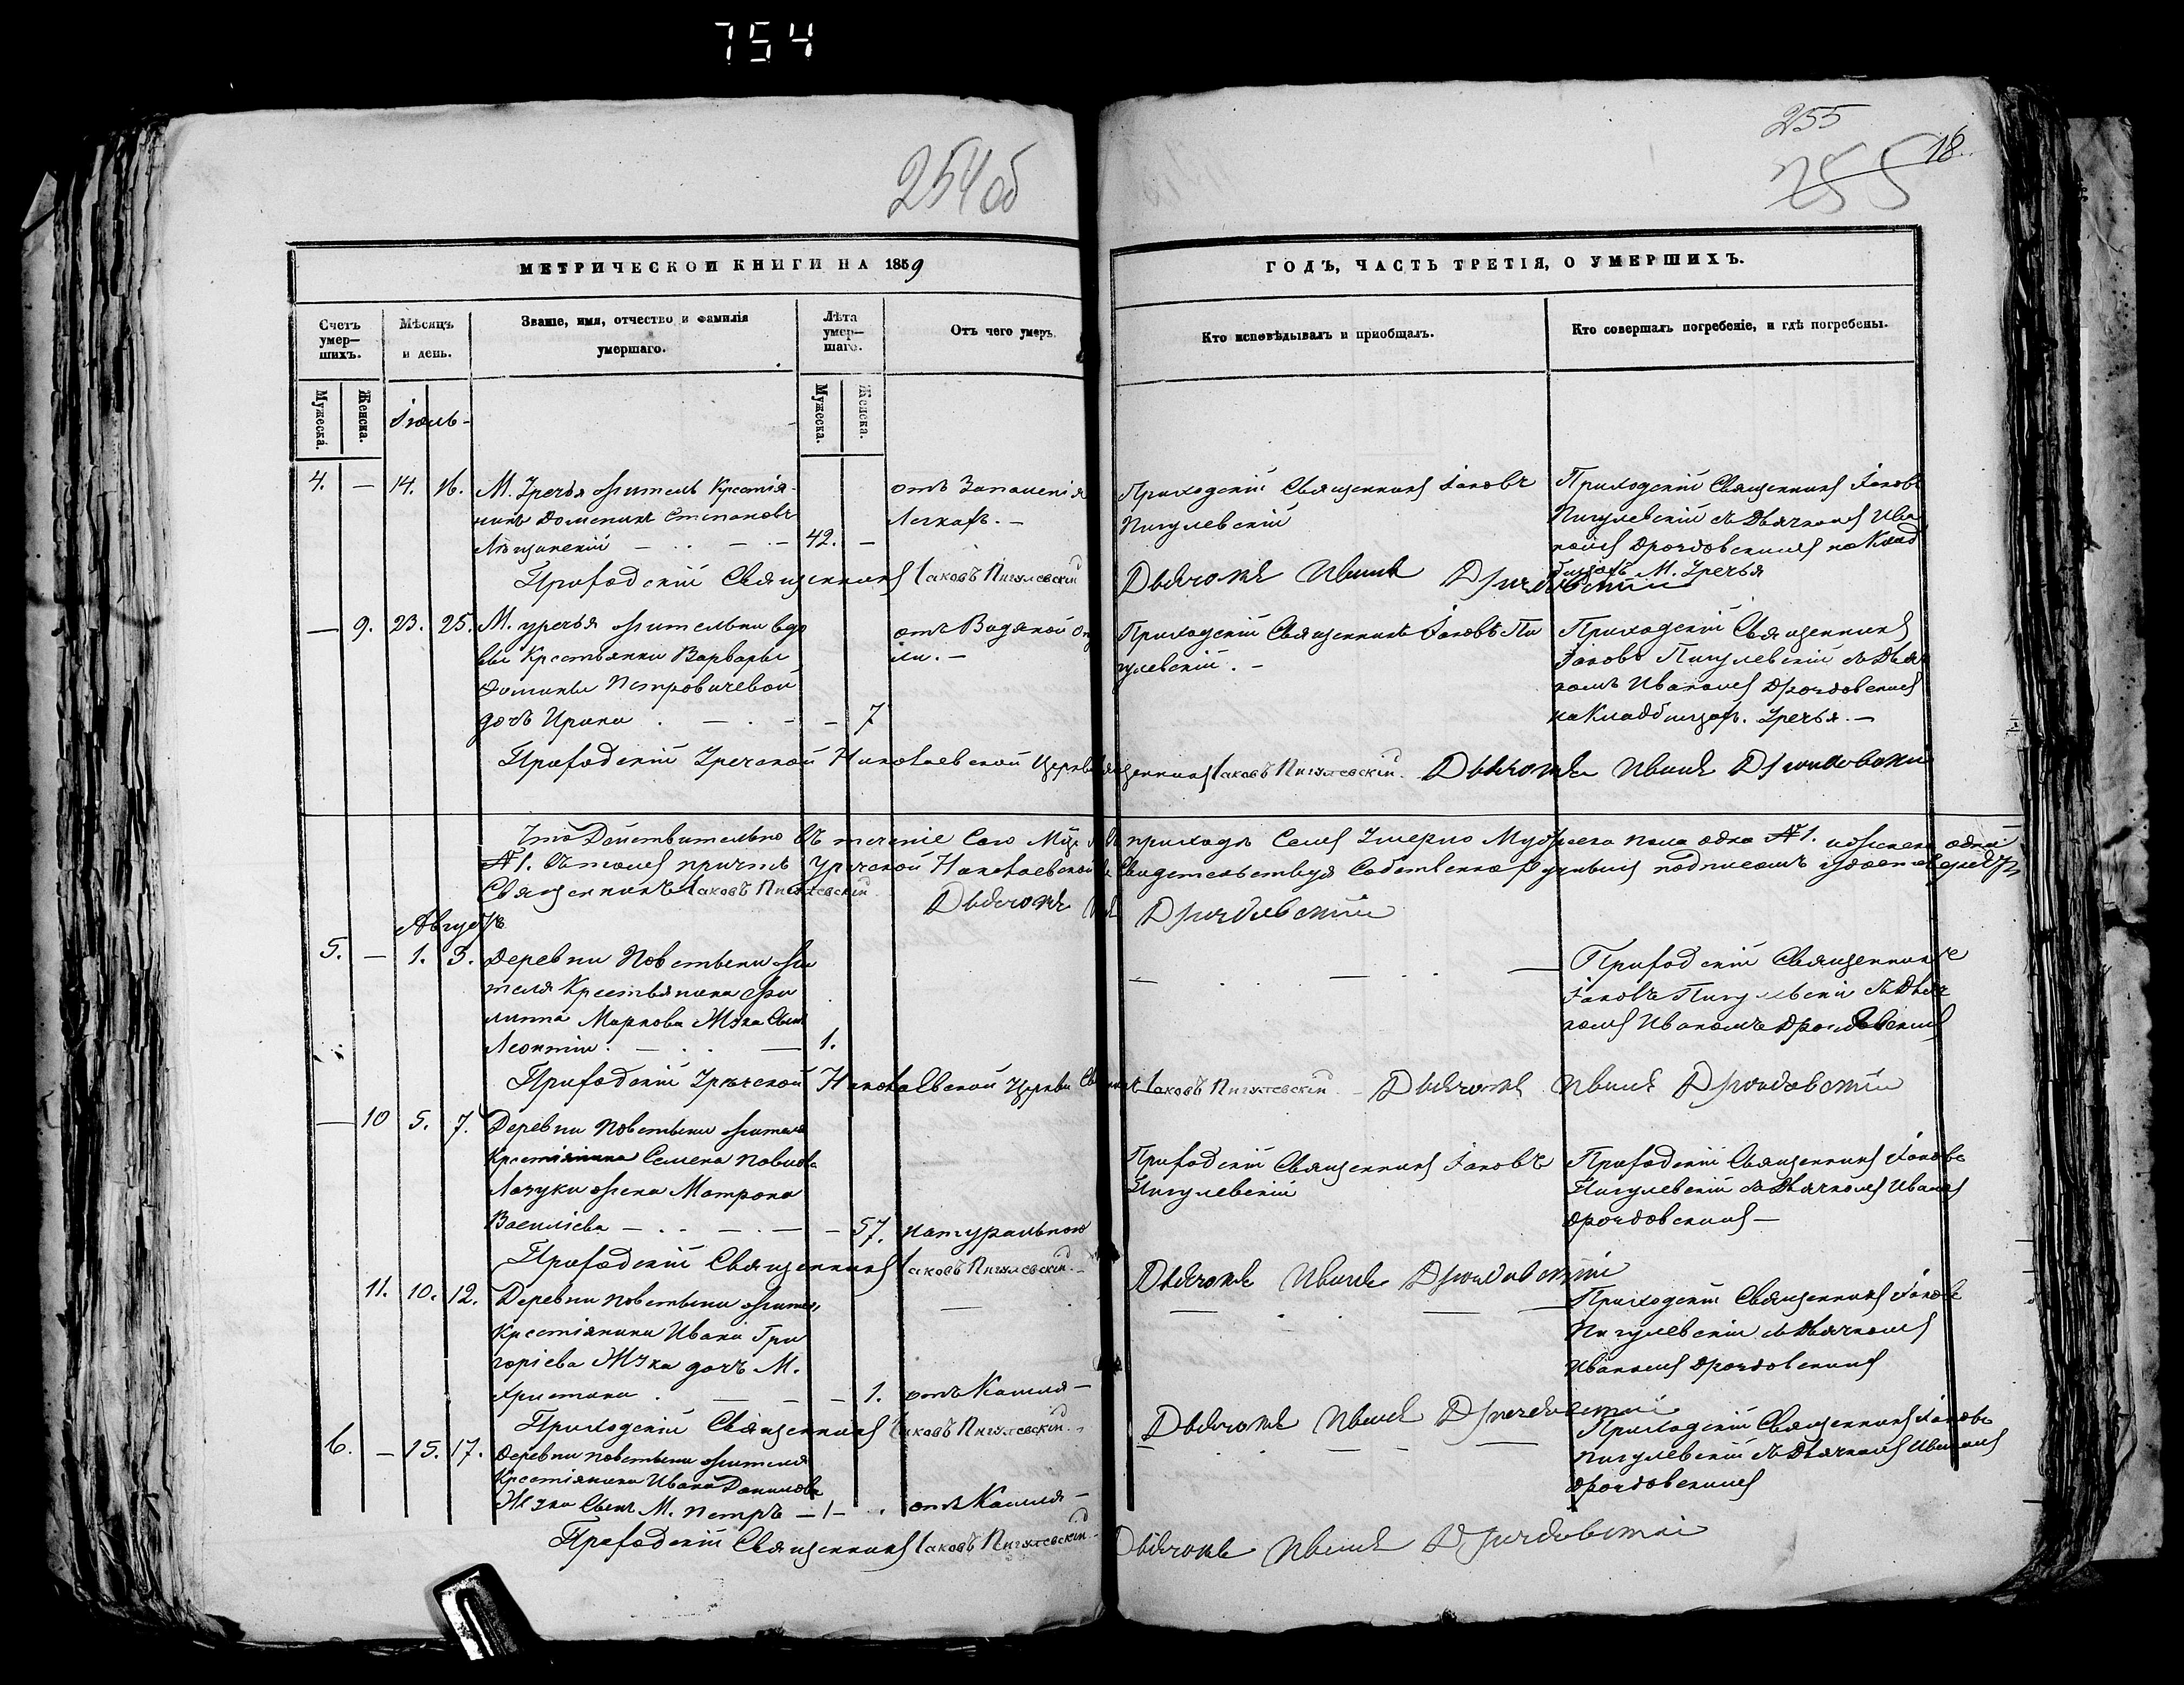 754
254об
255
255
18.
МЕТРИЧЕСКОЙ КНИГИ НА 1859
ГОДЪ, ЧАСТЬ ТРЕТІЯ, О УМЕРШИХЪ.
Счетъ умер—шихъ.
Мѣсяцъ и день.
Званіе, имя, отчество и фамилія умершаго.
Лѣта умер—шаго.
Отъ чего умеръ.
Кто исповѣдывалъ и пріобщалъ.
Кто совершалъ погребеніе, и гдѣ погребены.
Мужеска.
Женска.
Мужеска.
Женска.
Іюль-
4. — 14. 16.
М. Уречья житель Крестія-
нинъ Доминикъ Степановъ
42. —
отъ Запаленія
Легкахъ. —
Приходскій Священникъ Іаковъ
Пигулевскій
Приходскій Священникъ Іаковъ
Пигулевскій съ Дьячкомъ Ива
номъ Дроздовскимъ на Клад
бищахъ М. Уречья
Приходскій Священникъ Іаковъ Пигулевскій
Дьячокъ Иванъ Дроздовскій
— 9. 23. 25.
М. Уречья жительки вдо
вы Крестьянки Варвары
Фомины Петровичевой
дочь Ирина . — . - — 7
отъ Водяной Оп
ли. —
Приходскій Священникъ Іаковъ Пи
гулевскій. —
Приходскій Священникъ
Іаковъ Пигулевскій съ Дьяч
комъ Иваномъ Дроздовскимъ
на Кладбищахъ. Уречья. —
Приходскій Уречской Николаевской Церкви Священникъ Іаковъ Пигулевскій. Дьячокъ Иванъ Дроздовскій
Что Дѣйствительно въ теченіе Сего приходѣ Семъ Умерло Мужеска пола одна №1. и женска одна
№1. въ томъ причтъ Уречской Николаевской Свидетельствуя Собственноручнымъ подписомъ
Священникъ Іаковъ Пигулевскій
Дьячокъ Дроздовскій
Августъ
5. — 1. 3.
Деревни Повстыни жи
теля Крестьянина Фи
липпа Маркова Жука Сынъ
Леонтій. — . . — 1.
Приходскій Священникъ
Іаковъ Пигулевскій съ Дьяч
комъ Иваномъ Дроздовскимъ
Приходскій Уречской Николаевской Церкви Іаковъ Пигулевскій — Дьячокъ Иванъ Дроздовскій
— 10 5. 7.
Деревни Повстыни жителя
Крестіянина Семена Павлова
Лазуки жена Матрона
Василіева — . . — . — — 57. натуральною
Приходскій Священникъ Іаковъ
Пигулевскій
Приходскій Священникъ Іаковъ
Пигулевскій съ Дьячкомъ Иваномъ
Дроздовскимъ —
Приходскій Священникъ Іаковъ Пигулевскій.
Дьячокъ Иванъ Дроздовскій
11. 10. 12.
Деревни Повстыни жителя
Крестіянина Ивана Гри
горіева Жука дочь М.
Христина . — — — 1. отъ Кашля —
Приходскій Священникъ Іаковъ
Пигулевскій съ Дьячкомъ
Иваномъ Дроздовскимъ
Приходскій Священникъ Іаковъ Пигулевскій.
Дьячокъ Иванъ Дроздовскій
6. — 15. 17.
Деревни Повстыни жителя
Крестіянина Ивана Данилова
Жука Сынъ М. Петръ — 1 — . отъ Кашля —
Приходскій Священникъ Іаковъ
Пигулевскій съ Дьячкомъ Иваномъ
Дроздовскимъ
Приходскій Священникъ Іаковъ Пигулевскій.
Дьячокъ Иванъ Дроздовскій